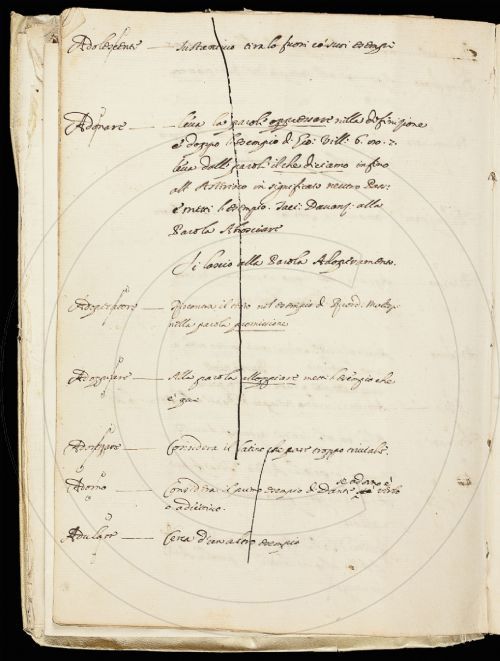 Adolescente — Sustantivo tiralo fuori co' suoi esempi
Adonare — leva la parola oppressare nella definizione
e doppo l'esempio di Gio: Vill: 6. 80. 7.
leva dalle parole il che diciamo infino
all' Asterisco in significato neutro Pass:
e metti l'esempio. Taci: Davanz: alla
Parola Abbosciare
Si lascia alla Parola Adoperamento.
Adoperatore — Riscontra il testo nell'esempio di
nella parola promissione
Adoppiare — Alla parola alloppiare metti l'esempio che
è qui
Adorezzare — Considera il latino che pare troppo triviale
Adorno — Considera il primo esempio di Dante se adorno è verbo
o adiettivo.
Adulatore — Cerca d'un altro esempio